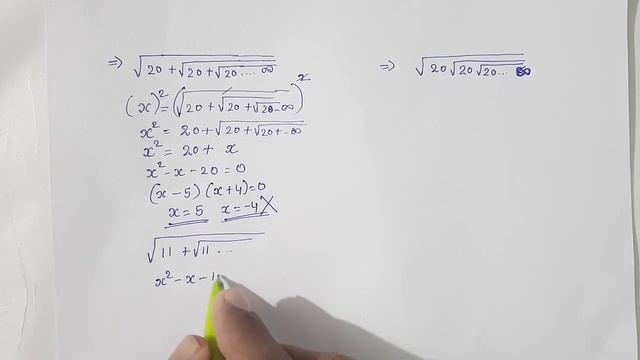 ⇒ √(20 + √(20 + √(20 .... ∞
(x)² = (√(20 + √(20 + √(20 - ∞)²
x² = 20 + √(20 + √(20 + - ∞
x² = 20 + x
x² - x - 20 = 0
(x - 5) (x + 4) = 0
x = 5 x = -4 X
√(11 + √(11 ...
x² - x - 1
⇒ √(20 √(20 √(20 ... ∞